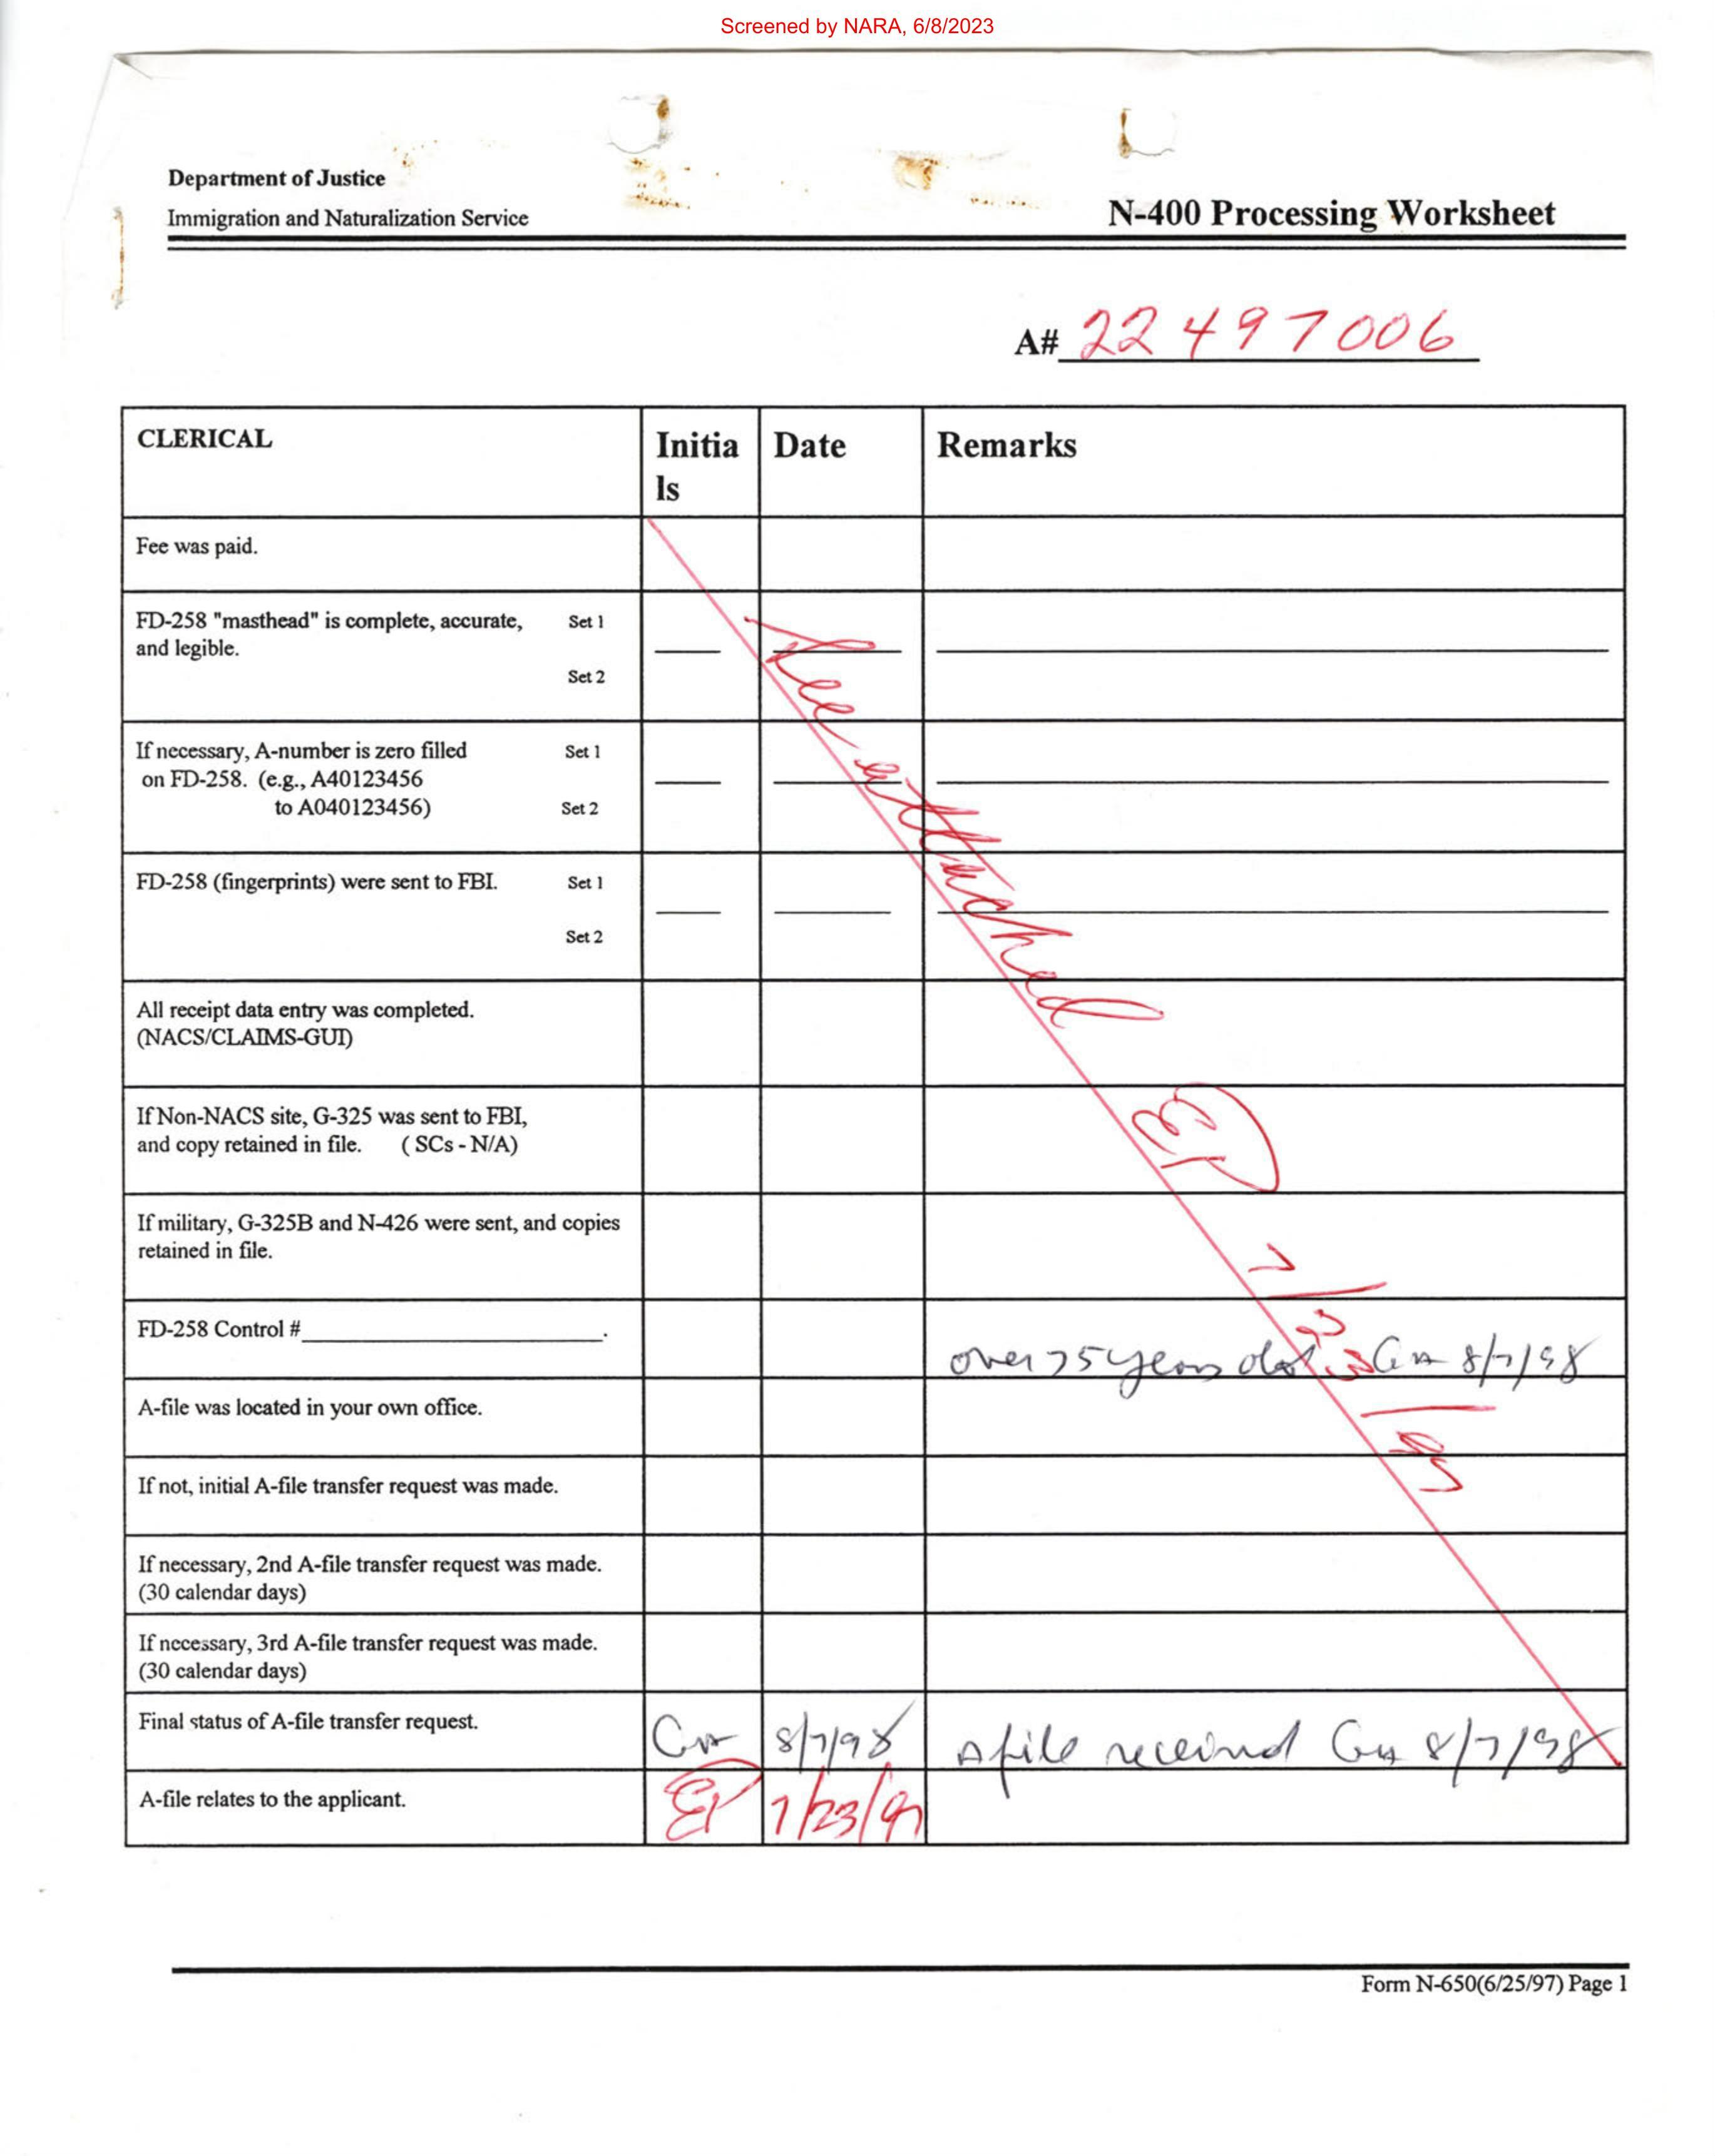 Screened by NARA, 6/8/2023
Department of Justice
Immigration and Naturalization Service
N-400 Processing Worksheet
A# 22497006
CLERICAL
Initia
ls
Date
Remarks
Fee was paid.
FD-258 "masthead" is complete, accurate, Set 1
and legible.
Set 2
If necessary, A-number is zero filled Set 1
on FD-258. (e.g., A40123456
to A040123456) Set 2
FD-258 (fingerprints) were sent to FBI. Set 1
Set 2
See attached
All receipt data entry was completed.
(NACS/CLAIMS-GUI)
If Non-NACS site, G-325 was sent to FBI,
and copy retained in file. ( SCs - N/A)
EP
7/23/97
If military, G-325B and N-426 were sent, and copies
retained in file.
FD-258 Control #.
over 75 years old 8/7/98
A-file was located in your own office.
If not, initial A-file transfer request was made.
If necessary, 2nd A-file transfer request was made.
(30 calendar days)
If necessary, 3rd A-file transfer request was made.
(30 calendar days)
Final status of A-file transfer request. 8/7/98 A file received 8/7/98
A-file relates to the applicant. EP 7/23/97
Form N-650(6/25/97) Page 1